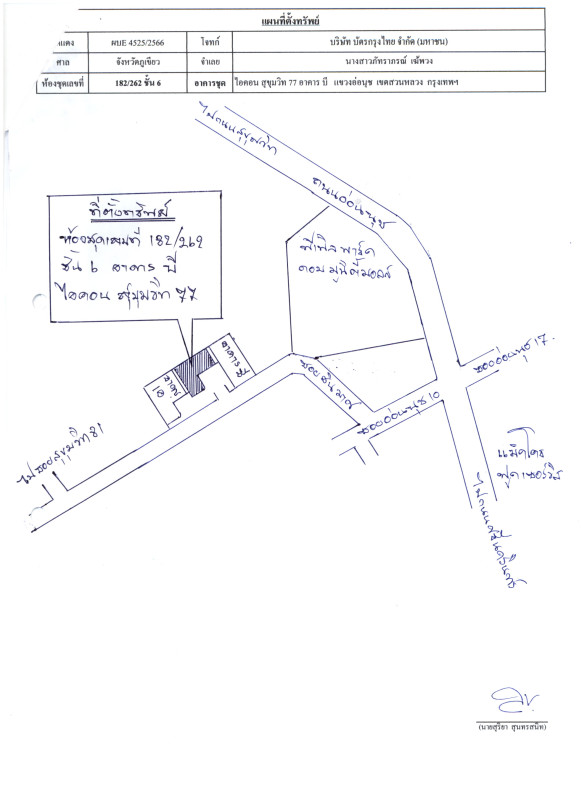 แผนที่ตั้งทรัพย์
แดง ผบE 4525/2566 โจทก์ บริษัท บัตรกรุงไทย จำกัด (มหาชน)
ศาล จังหวัดภูเขียว จำเลย นางสาวภัทราภรณ์ เฉ้พวง
ห้องชุดเลขที่ 182/262 ชั้น 6 อาคารชุด ไอคอน สุขุมวิท 77 อาคาร บี แขวงอ่อนุช เขตสวนหลวง กรุงเทพฯ
ไปถนนสุขุมวิท
ถนนอ่อนนุช
ที่ตั้งทรัพย์
ห้องชุดเลขที่ 182/262
ชั้น 6 อาคาร บี
ไอคอน สุขุมวิท 77
พีเพิลพาร์ค
คอมมูนิตี้มอลล์
อาคาร
อาคาร
เอ
ซอยอ่อนนุช 17
ซอยอ่อนนุช 10
ไปซอยสุขุมวิท 81
แม็คโคร
ฟูดเซอร์วิส
ไปถนนศรีนครินทร์
(นายสุริยา สุนทรสนิท)